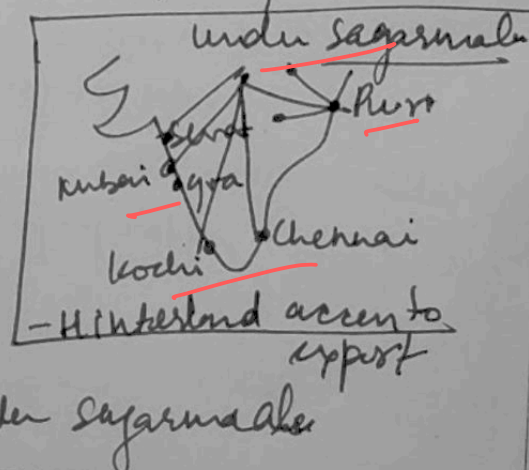 under sagarmala
Puri
Surat
Mubai
Kochi
Chennai
- Hinterland access to
export
sagarmala